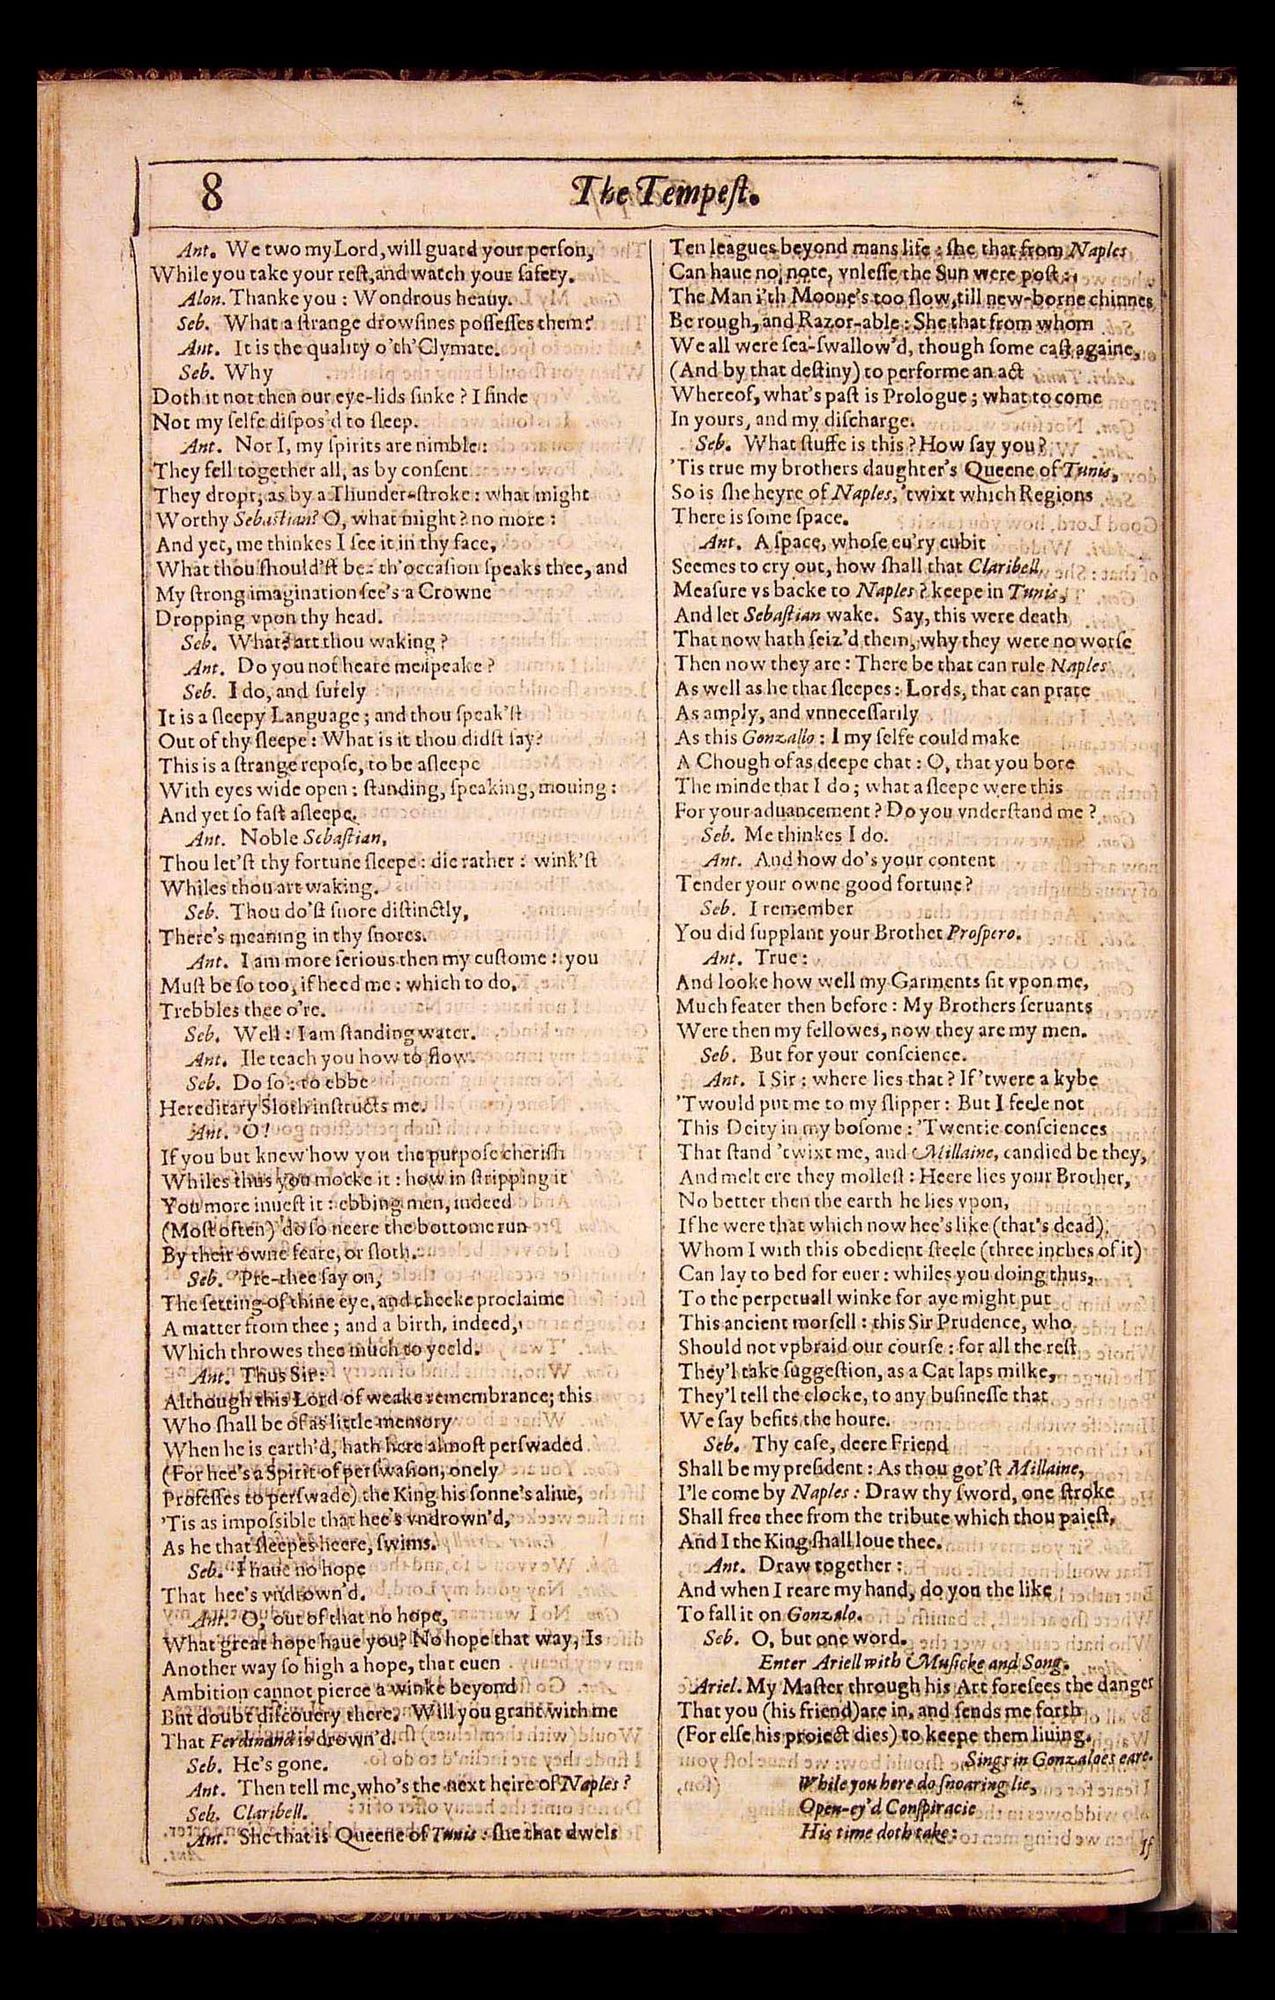 8
The Tempeſt.
Ant. We two my Lord, will guard your perſon,
While you take your reſt, and watch your ſafety.
Alon. Thanke you : Wondrous heauy.
Seb. What a ſtrange drowſines poſſeſſes them?
Ant. It is the quality o'th'Clymate.
Seb. Why
Doth it not then our eye-lids ſinke ? I finde
Not my ſelfe diſpos'd to ſleep.
Ant. Nor I, my ſpirits are nimble :
They fell together all, as by conſent
They dropt, as by a Thunder-ſtroke : what might
Worthy Sebaſtian? O, what might ? no more :
And yet, me thinkes I ſee it in thy face,
What thou ſhould'ſt be : th'occaſion ſpeaks thee, and
My ſtrong imagination ſee's a Crowne
Dropping vpon thy head.
Seb. What? art thou waking ?
Ant. Do you not heare me ſpeake ?
Seb. I do, and ſurely
It is a ſleepy Language ; and thou ſpeak'ſt
Out of thy ſleepe : What is it thou didſt ſay?
This is a ſtrange repoſe, to be aſleepe
With eyes wide open : ſtanding, ſpeaking, mouing :
And yet ſo faſt aſleepe.
Ant. Noble Sebaſtian,
Thou let'ſt thy fortune ſleepe : die rather : wink'ſt
Whiles thou art waking.
Seb. Thou do'ſt ſnore diſtinctly,
There's meaning in thy ſnores.
Ant. I am more ſerious then my cuſtome : you
Muſt be ſo too, if heed me : which to do,
Trebbles thee o're.
Seb. Well : I am ſtanding water.
Ant. Ile teach you how to flow.
Seb. Do ſo : to ebbe
Hereditary Sloth inſtructs me.
Ant. O!
If you but knew how you the purpoſe cheriſh
Whiles thus you mocke it : how in ſtripping it
You more inueſt it : ebbing men, indeed
(Moſt often) do ſo neere the bottome run
By their owne feare, or ſloth.
Seb. 'Pre-thee ſay on,
The ſetting of thine eye, and cheeke proclaime
A matter from thee ; and a birth, indeed,
Which throwes thee much to yeeld.
Ant. Thus Sir:
Although this Lord of weake remembrance; this
Who ſhall be of as little memory
When he is earth'd, hath here almoſt perſwaded
(For hee's a Spirit of perſwaſion, onely
Profeſſes to perſwade) the King his ſonne's aliue,
'Tis as impoſsible that hee's vndrown'd,
As he that ſleepes heere, ſwims.
Seb. I haue no hope
That hee's vndrown'd.
Ant. O, out of that no hope,
What great hope haue you? No hope that way, Is
Another way ſo high a hope, that euen
Ambition cannot pierce a winke beyond
But doubt diſcouery there. Will you grant with me
That Ferdinand is drown'd.
Seb. He's gone.
Ant. Then tell me, who's the next heire of Naples ?
Seb. Claribell.
Ant. She that is Queene of Tunis : ſhe that dwels
Ten leagues beyond mans life : ſhe that from Naples
Can haue no note, vnleſſe the Sun were poſt :
The Man i'th Moone's too ſlow, till new-borne chinnes
Be rough, and Razor-able : She that from whom
We all were ſea-ſwallow'd, though ſome caſt againe,
(And by that deſtiny) to performe an act
Whereof, what's paſt is Prologue ; what to come
In yours, and my diſcharge.
Seb. What ſtuffe is this ? How ſay you?
'Tis true my brothers daughter's Queene of Tunis,
So is ſhe heyre of Naples, 'twixt which Regions
There is ſome ſpace.
Ant. A ſpace, whoſe eu'ry cubit
Seemes to cry out, how ſhall that Claribell
Meaſure vs backe to Naples ? keepe in Tunis,
And let Sebaſtian wake. Say, this were death
That now hath ſeiz'd them, why they were no worſe
Then now they are : There be that can rule Naples
As well as he that ſleepes : Lords, that can prate
As amply, and vnneceſſarily
As this Gonzallo : I my ſelfe could make
A Chough of as deepe chat : O, that you bore
The minde that I do ; what a ſleepe were this
For your aduancement ? Do you vnderſtand me ?
Seb. Me thinkes I do.
Ant. And how do's your content
Tender your owne good fortune?
Seb. I remember
You did ſupplant your Brother Proſpero.
Ant. True :
And looke how well my Garments ſit vpon me,
Much feater then before : My Brothers ſeruants
Were then my fellowes, now they are my men.
Seb. But for your conſcience.
Ant. I Sir : where lies that ? If 'twere a kybe
'Twould put me to my ſlipper : But I feele not
This Deity in my boſome : 'Twentie conſciences
That ſtand 'twixt me, and Millaine, candied be they,
And melt ere they molleſt : Heere lies your Brother,
No better then the earth he lies vpon,
If he were that which now hee's like (that's dead)
Whom I with this obedient ſteele (three inches of it)
Can lay to bed for euer : whiles you doing thus,
To the perpetuall winke for aye might put
This ancient morſell : this Sir Prudence, who
Should not vpbraid our courſe : for all the reſt
They'l take ſuggeſtion, as a Cat laps milke,
They'l tell the clocke, to any buſineſſe that
We ſay befits the houre.
Seb. Thy caſe, deere Friend
Shall be my preſident : As thou got'ſt Millaine,
I'le come by Naples : Draw thy ſword, one ſtroke
Shall free thee from the tribute which thou paieſt,
And I the King ſhall loue thee.
Ant. Draw together :
And when I reare my hand, do you the like
To fall it on Gonzalo.
Seb. O, but one word.
Enter Ariell with Muſicke and Song.
Ariel. My Maſter through his Art foreſees the danger
That you (his friend) are in, and ſends me forth
(For elſe his proiect dies) to keepe them liuing.
Sings in Gonzaloes eare.
While you here do ſnoaring lie,
Open-ey'd Conſpiracie
His time doth take:
If